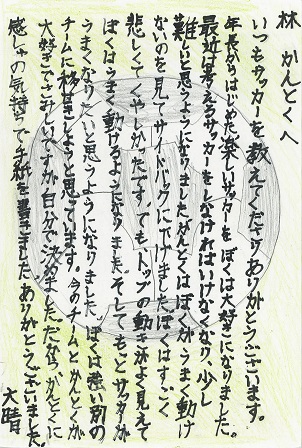 林 かんとくへ
いつもサッカーを教えてくださりありがとうございます。
年長からはじめた楽しいサッカーを、ぼくは大好きになりました。
最近は考えるサッカーをしなければいけなくなり、少し
難しいと思うようになりました。かんとくはぼくがうまく動け
ないのを見てサイドバックに下げました。ぼくはすごく
悲しくてくやしかったです。でも、トップの動きがよく見えて
ぼくはうまく動けるようになりました。そしてもっとサッカーが
うまくなりたいと思うようになりました。ぼくは強い別の
チームに移せきしようと思っています。今のチームとかんとくが
大好きでさみしいですが自分で決めました。だから、かんとくに
感しゃの気持ちで手紙を書きました。ありがとうございました。
大晴